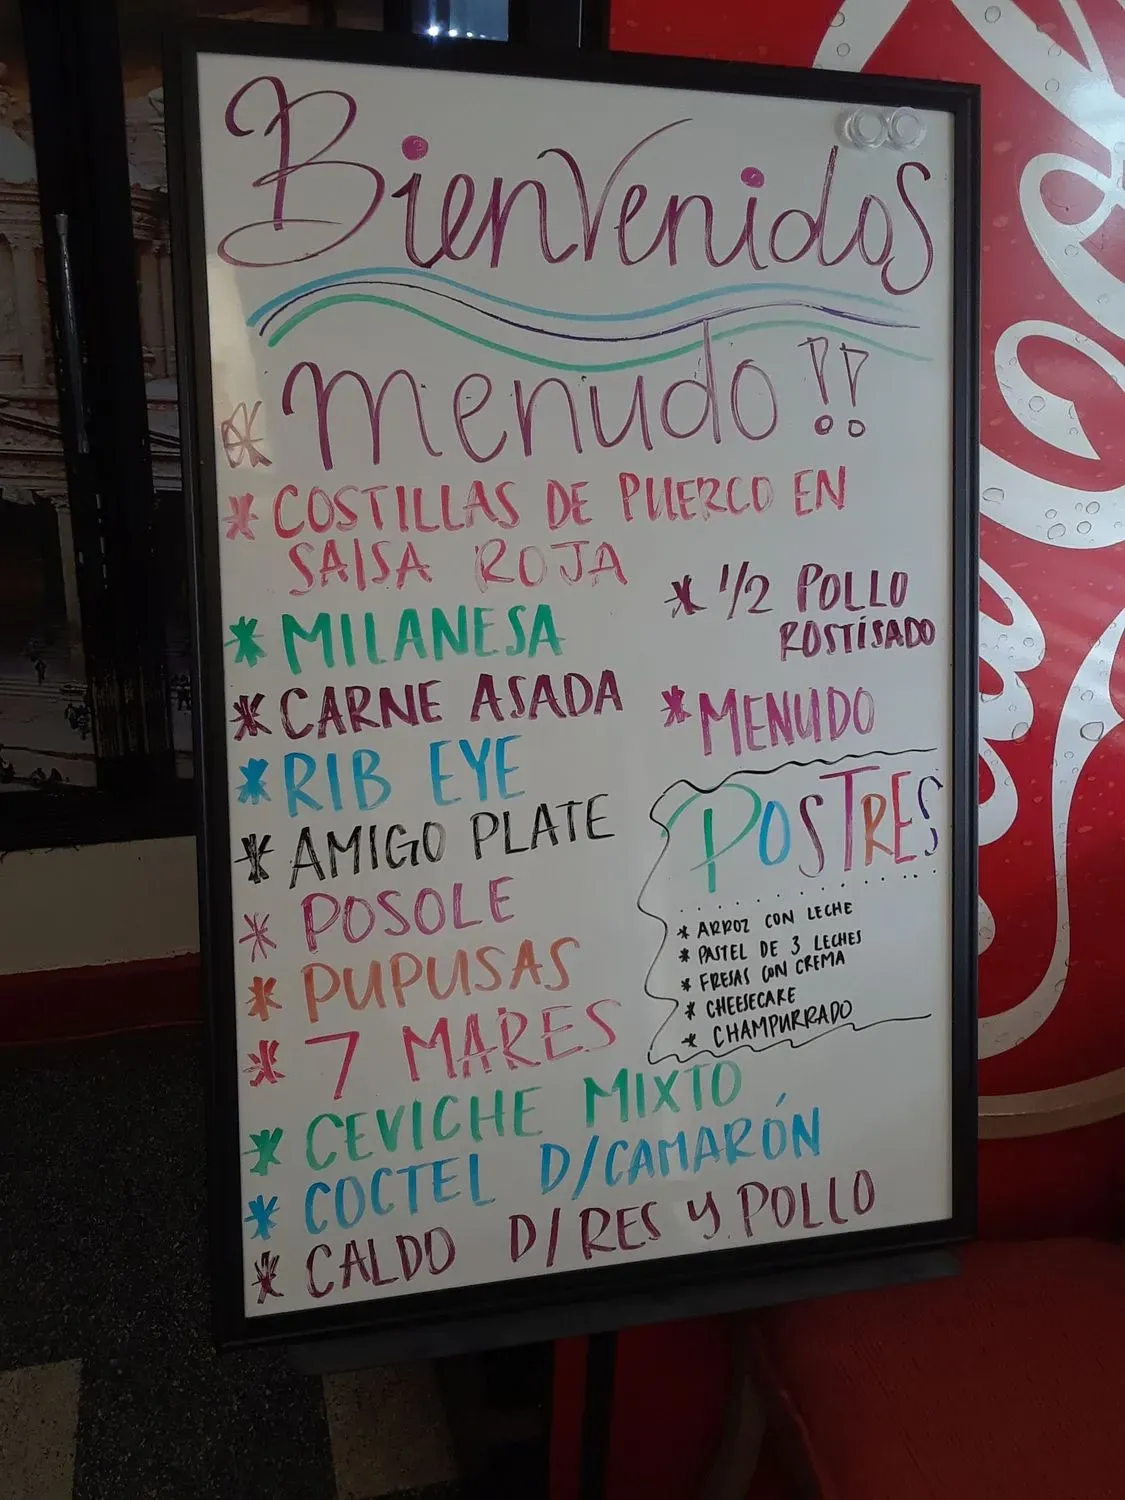 Bienvenidos
* menudo!!
* COSTILLAS DE PUERCO EN
SALSA ROJA
* MILANESA
* CARNE ASADA
* RIB EYE
* AMIGO PLATE
* POSOLE
* PUPUSAS
* 7 MARES
* CEVICHE MIXTO
* COCTEL D/CAMARÓN
* CALDO D/RES Y POLLO
* 1/2 POLLO
ROSTISADO
* MENUDO
POSTRES
* ARROZ CON LECHE
* PASTEL DE 3 LECHES
* FRESAS CON CREMA
* CHEESECAKE
* CHAMPURRADO